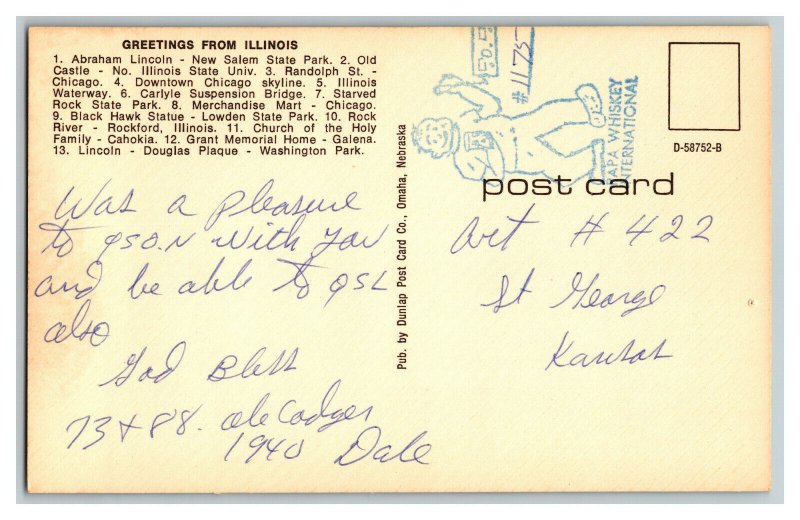 GREETINGS FROM ILLINOIS
1. Abraham Lincoln - New Salem State Park. 2. Old
Castle - No. Illinois State Univ. 3. Randolph St. -
Chicago. 4. Downtown Chicago skyline. 5. Illinois
Waterway. 6. Carlyle Suspension Bridge. 7. Starved
Rock State Park. 8. Merchandise Mart - Chicago.
9. Black Hawk Statue - Lowden State Park. 10. Rock
River - Rockford, Illinois. 11. Church of the Holy
Family - Cahokia. 12. Grant Memorial Home - Galena.
13. Lincoln - Douglas Plaque - Washington Park.
Was a pleasure
to QSO.N with you
and be able to QSL
also
God Bless
73 & 88. ole Codger
1940 Dale
Pub. by Dunlap Post Card Co., Omaha, Nebraska
#1175
APA WHISKEY
INTERNATIONAL
D-58752-B
post card
Art # 422
St George
Kansas